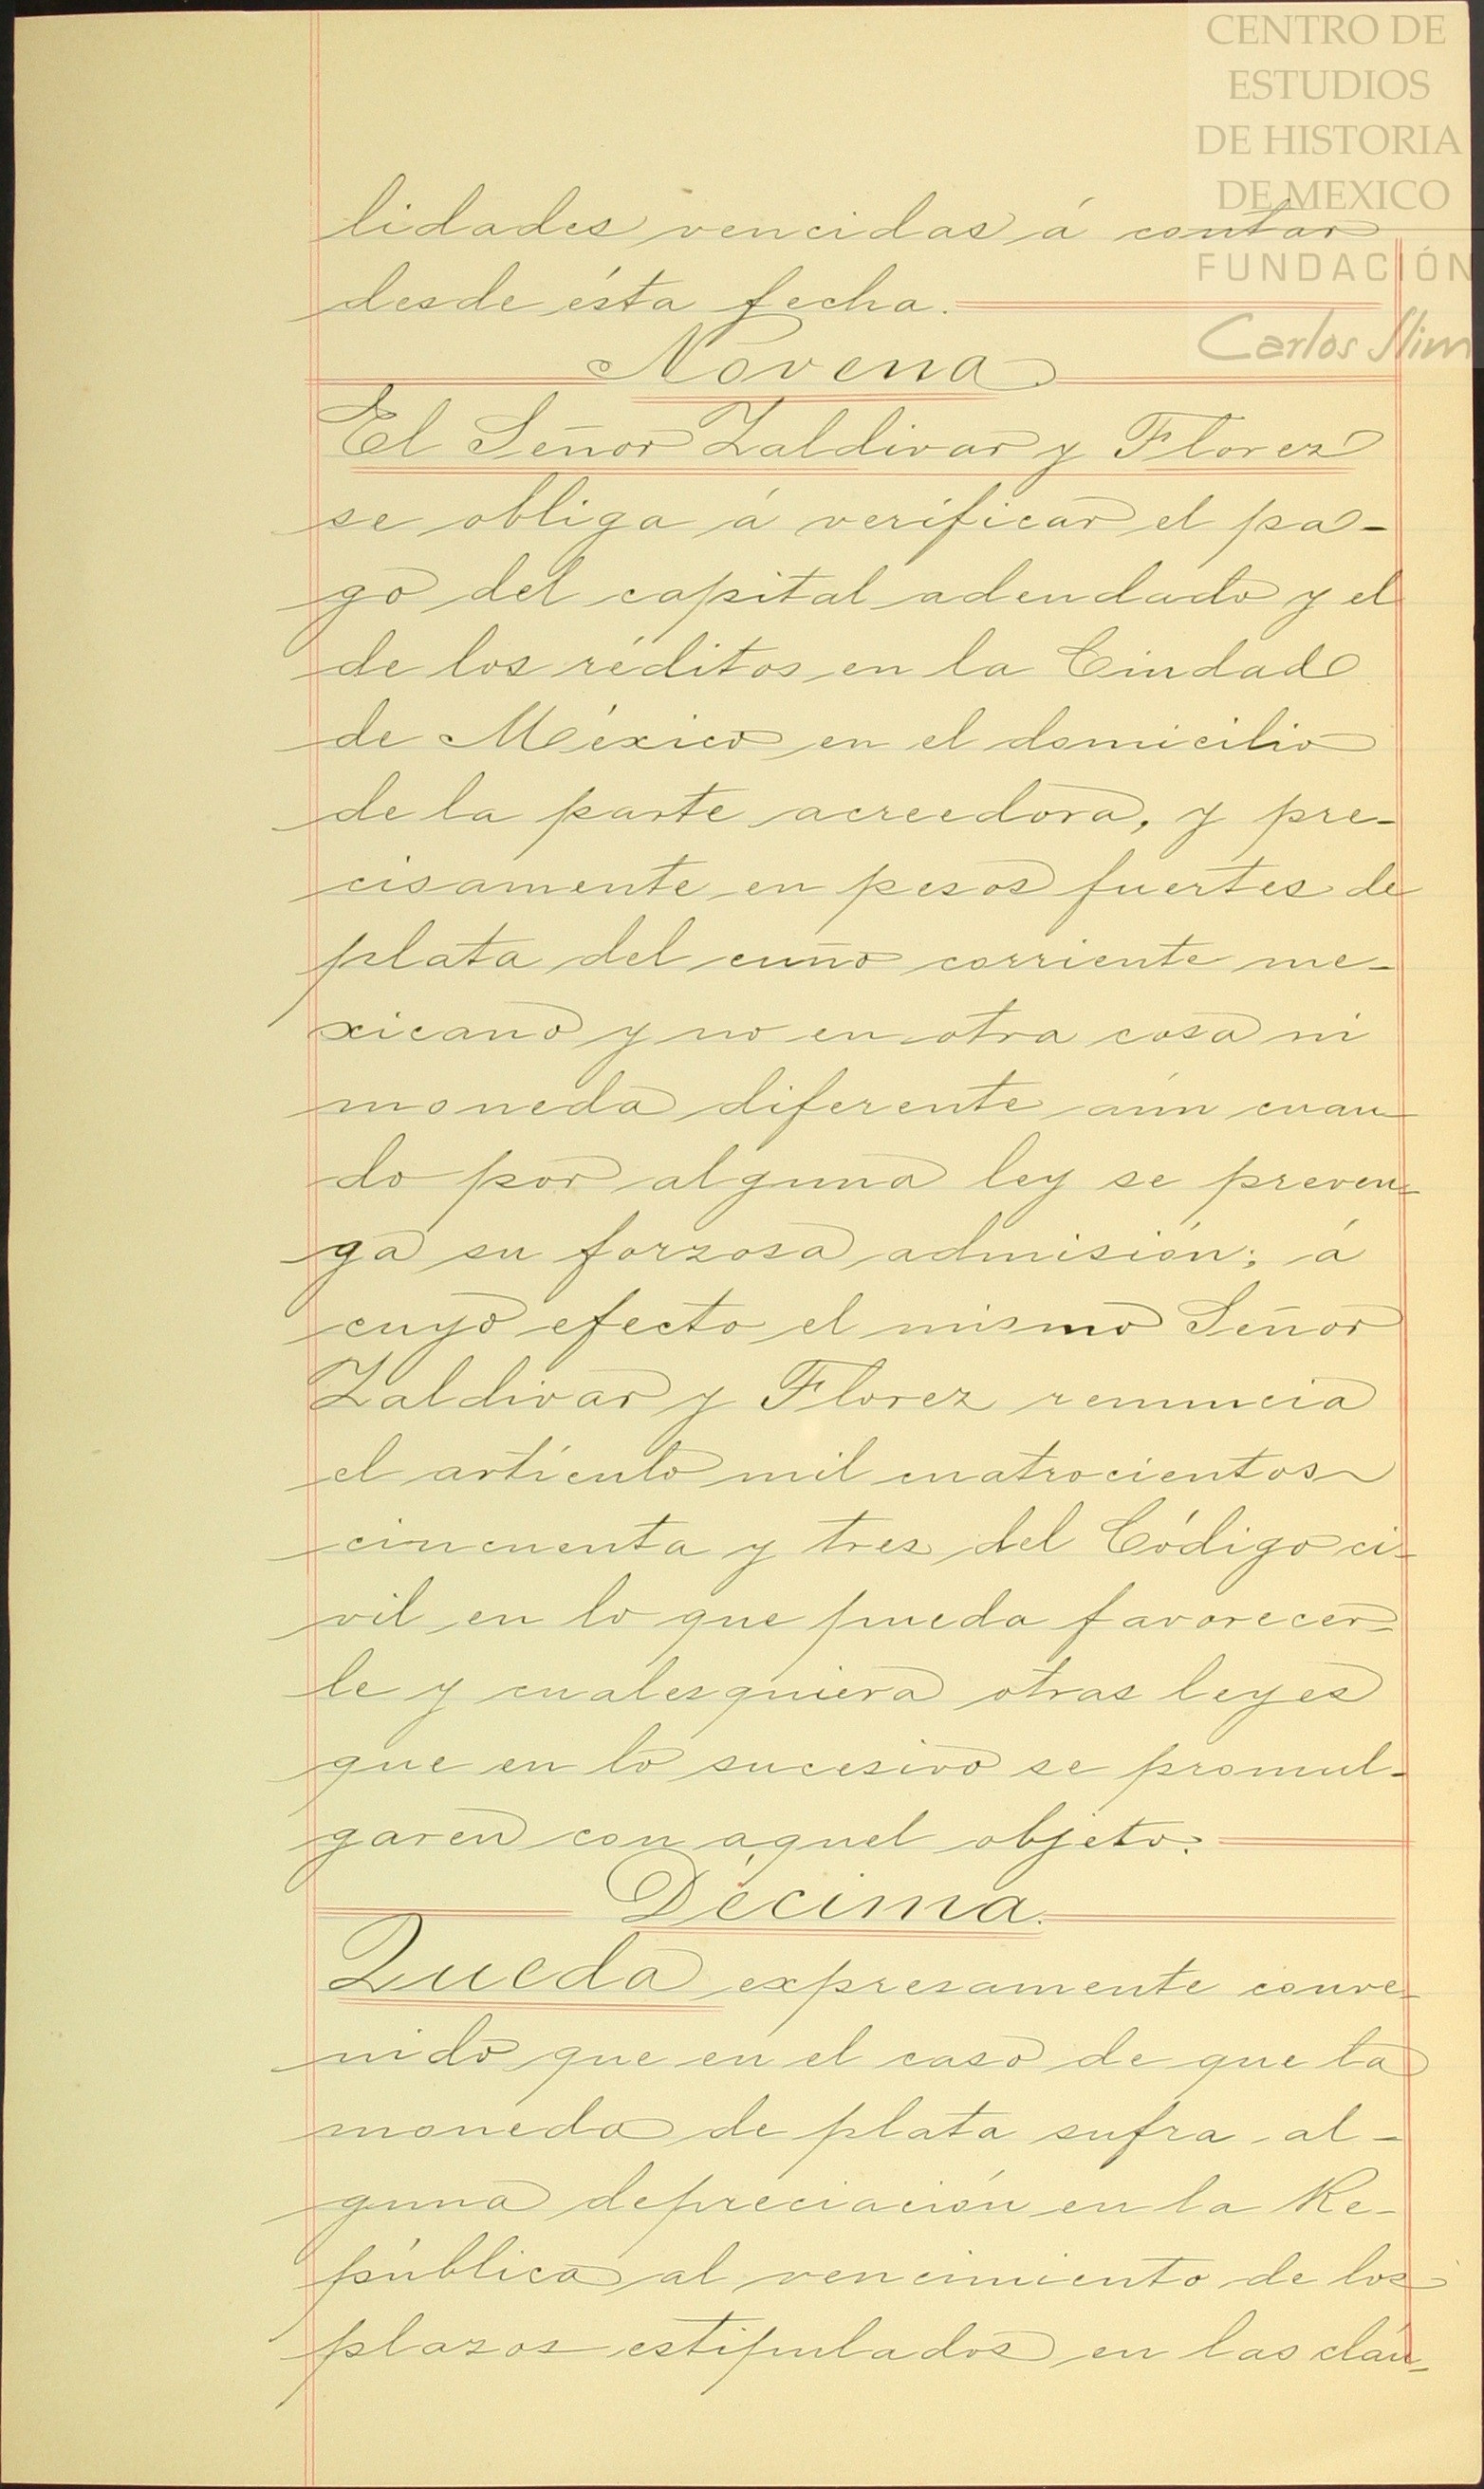 CENTRO DE
ESTUDIOS
DE HISTORIA
DE MEXICO
FUNDACIÓN
Carlos Slim
lidades vencidas á contar
desde ésta fecha.
Novena
El Señor Zaldivar y Florez
se obliga á verificar el pa-
go del capital adeudado y el
de los réditos en la Ciudad
de México en el domicilio
de la parte acreedora, y pre-
cisamente en pesos fuertes de
plata del cuño corriente me-
xicano y no en otra cosa ni
moneda diferente aún cuan-
do por alguna ley se preven-
ga su forzosa admisión; á
cuyo efecto el mismo Señor
Zaldivar y Florez renuncia
el artículo mil cuatrocientos
cincuenta y tres del Código ci-
vil en lo que pueda favorecer-
le y cualesquiera otras leyes
que en lo sucesivo se promul-
garen con aquel objeto.
Décima.
Queda expresamente conve-
nido que en el caso de que la
moneda de plata sufra al-
guna depreciación en la Re-
pública al vencimiento de los
plazos estipulados en las cláu-